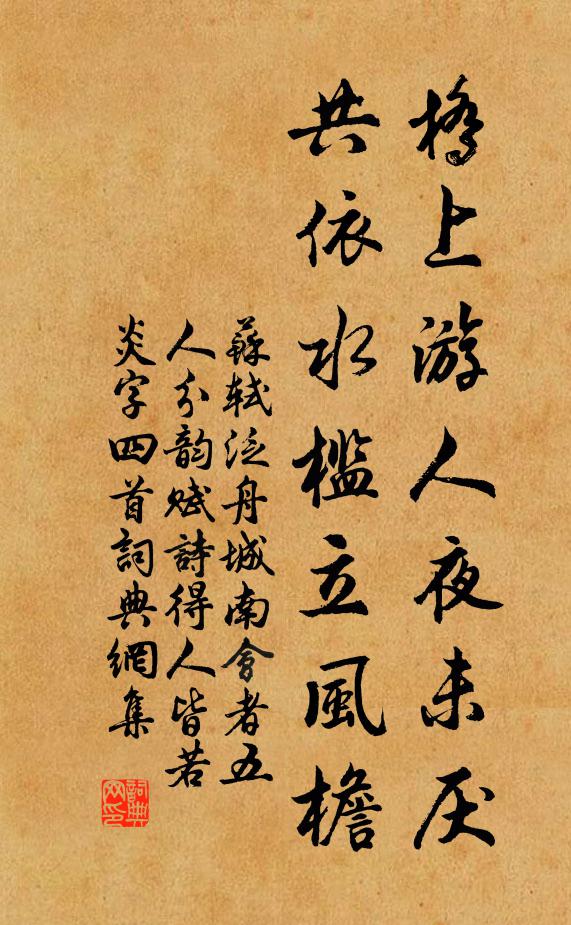 橋上游人夜未厌
共依水檻立風檐
蘇軾泛舟城南會者五
人分韵賦詩得人皆若
炎字四首詞典網集
詞典
网印